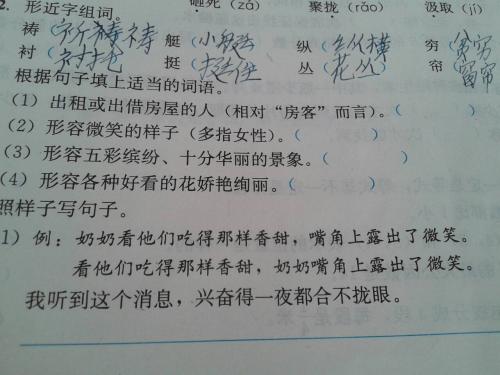 2. 形近字组词。 砸死(zá) 聚拢(rǎo) 汲取(jí)
祷(祈祷) 艇(小艇) 纵(纵横) 穷(贫穷)
衬(衬托) 挺(挺住) 丛(花丛) 帘(窗帘)
根据句子填上适当的词语。
(1) 出租或出借房屋的人(相对“房客”而言)。( )
(2) 形容微笑的样子(多指女性)。( )
(3) 形容五彩缤纷、十分华丽的景象。( )
(4) 形容各种好看的花娇艳绚丽。( )
照样子写句子。
1) 例：奶奶看他们吃得那样香甜，嘴角上露出了微笑。
看他们吃得那样香甜，奶奶嘴角上露出了微笑。
我听到这个消息，兴奋得一夜都合不拢眼。